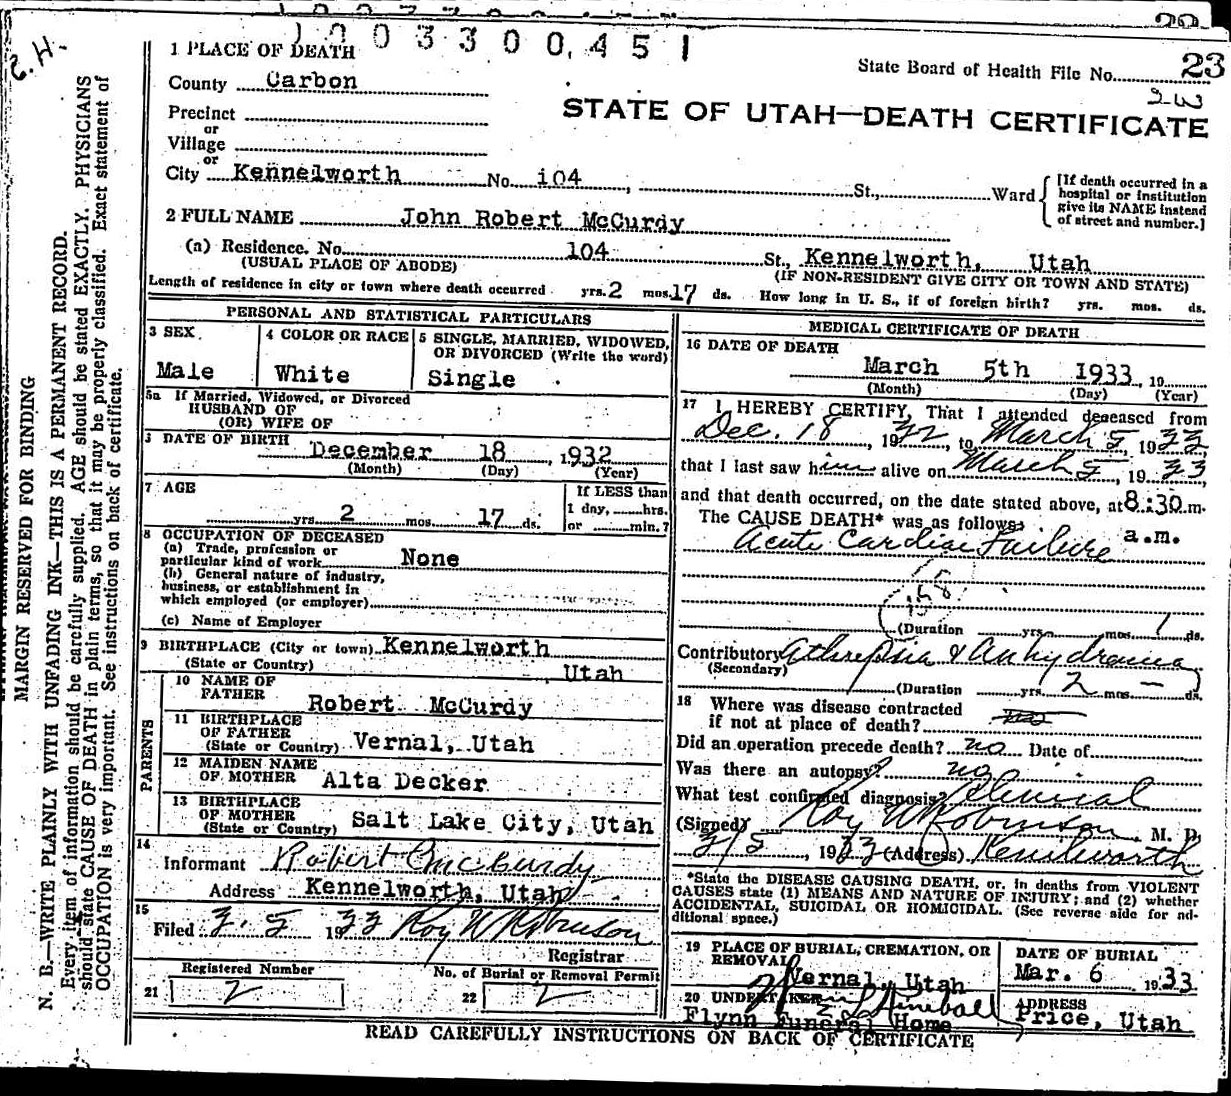 1003300,451
23
State Board of Health File No.
STATE OF UTAH—DEATH CERTIFICATE
1 PLACE OF DEATH
County Carbon
Precinct
or
Village
or
City Kennelworth No. 104, St., Ward
[If death occurred in a hospital or institution give its NAME instead of street and number.]
2 FULL NAME John Robert McCurdy
(a) Residence. No. 104 St., Kennelworth, Utah
(USUAL PLACE OF ABODE) (IF NON-RESIDENT GIVE CITY OR TOWN AND STATE)
Length of residence in city or town where death occurred yrs. 2 mos. 17 ds. How long in U. S., if of foreign birth? yrs. mos. ds.
PERSONAL AND STATISTICAL PARTICULARS
3 SEX
Male
4 COLOR OR RACE
White
5 SINGLE, MARRIED, WIDOWED, OR DIVORCED (Write the word)
Single
5a If Married, Widowed, or Divorced
HUSBAND OF
(OR) WIFE OF
DATE OF BIRTH December 18, 1932
(Month) (Day) (Year)
7 AGE
yrs. 2 mos. 17 ds.
If LESS than
1 day, hrs.
or min.?
8 OCCUPATION OF DECEASED
(a) Trade, profession or
particular kind of work None
(b) General nature of industry,
business, or establishment in
which employed (or employer)
(c) Name of Employer
9 BIRTHPLACE (City or town) Kennelworth
(State or Country) Utah
PARENTS
10 NAME OF
FATHER Robert McCurdy
11 BIRTHPLACE
OF FATHER
(State or Country) Vernal, Utah
12 MAIDEN NAME
OF MOTHER Alta Decker
13 BIRTHPLACE
OF MOTHER
(State or Country) Salt Lake City, Utah
14
Informant Robert McCurdy
Address Kennelworth, Utah
15
Filed 3. 5 1933 Roy W Robinson
Registrar
Registered Number
21 2
No. of Burial or Removal Permit
22 2
MEDICAL CERTIFICATE OF DEATH
16 DATE OF DEATH
March 5th 1933, 19
(Month) (Day) (Year)
17 I HEREBY CERTIFY, That I attended deceased from
Dec. 18, 1932, to March 5, 1933,
that I last saw him alive on March 5, 1933,
and that death occurred, on the date stated above, at 8:30 m.
a.m.
The CAUSE DEATH* was as follows:
Acute Cardiac Failure
(Duration yrs. mos. 1 ds.
Contributory Athrepsia & Anhydremia
(Secondary)
(Duration yrs. 2 mos. — ds.
18 Where was disease contracted
if not at place of death?
Did an operation precede death? no Date of
Was there an autopsy? no
What test confirmed diagnosis? Clinical
(Signed) Roy W Robinson, M. D.
3/5, 1933 (Address) Kenilworth
*State the DISEASE CAUSING DEATH, or, in deaths from VIOLENT
CAUSES state (1) MEANS AND NATURE OF INJURY; and (2) whether
ACCIDENTAL, SUICIDAL OR HOMICIDAL. (See reverse side for ad-
ditional space.)
19 PLACE OF BURIAL, CREMATION, OR
REMOVAL
Vernal, Utah
DATE OF BURIAL
Mar. 6 1933
20 UNDERTAKER
Flynn Funeral Home
ADDRESS
Price, Utah
READ CAREFULLY INSTRUCTIONS ON BACK OF CERTIFICATE
MARGIN RESERVED FOR BINDING
N. B.—WRITE PLAINLY WITH UNFADING INK—THIS IS A PERMANENT RECORD.
Every item of information should be carefully supplied. AGE should be stated EXACTLY. PHYSICIANS
should state CAUSE OF DEATH in plain terms, so that it may be properly classified. Exact statement of
OCCUPATION is very important. See instructions on back of certificate.